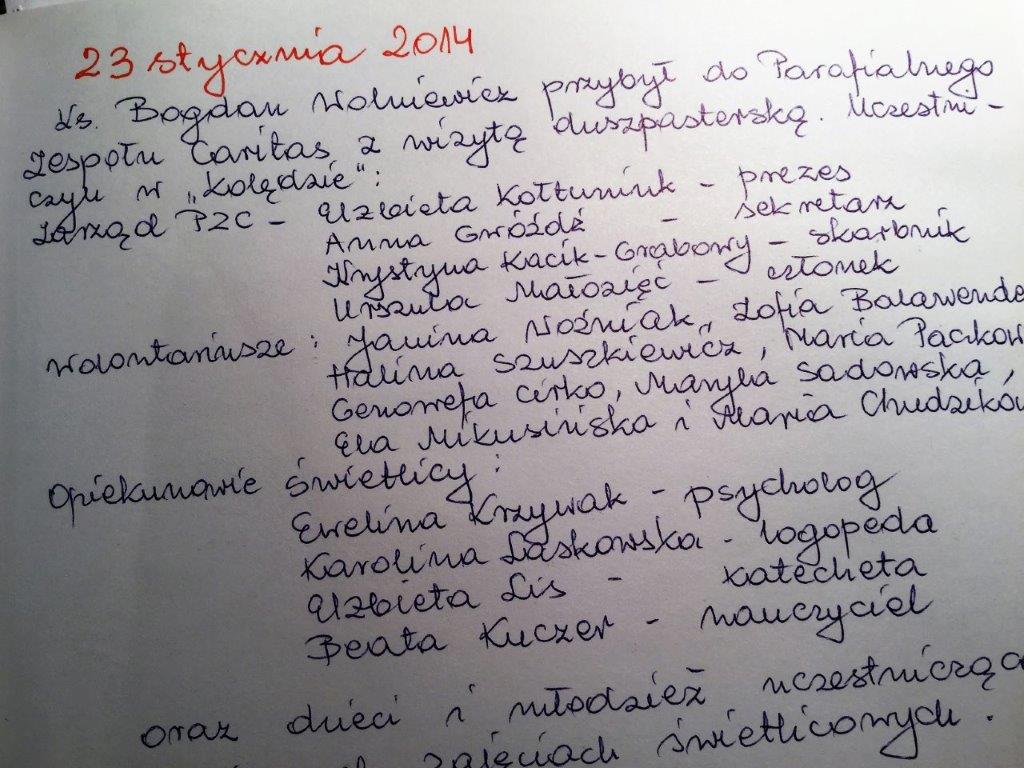 23 stycznia 2014
Ks. Bogdan Wolniewicz przybył do Parafialnego
Zespołu Caritas z wizytą duszpasterską. Uczestni-
czyli w „kolędzie":
Zarząd PZC - Elżbieta Kołtuniuk - prezes
Anna Gwóźdź - sekretarz
Krystyna Kacik-Grabowy - skarbnik
Urszula Małozięć - członek
Wolontariusze: Janina Woźniak, Zofia Balawende
Halina Szuszkiewicz, Maria Packow
Genowefa Cirko, Maryla Sadowska,
Ela Mikusińska i Maria Chudzików
Opiekunowie świetlicy:
Ewelina Krzywak - psycholog
Karolina Laskowska - logopeda
Elżbieta Lis - katecheta
Beata Kuczer - nauczyciel
oraz dzieci i młodzież uczestnicząca
zajęciach świetlicowych.